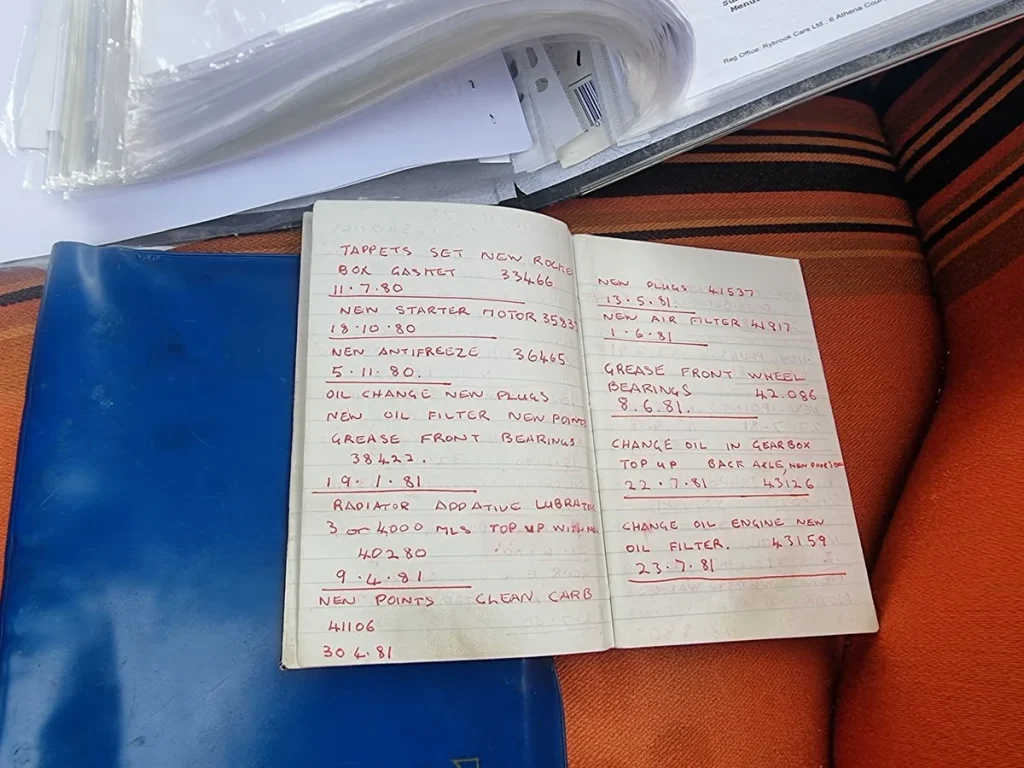 Menu
Reg Office: Rybrook Cars Ltd - 6 Athena Cou
TAPPETS SET NEW ROCKE
BOX GASKET 33466
11.7.80
NEW STARTER MOTOR 3583
18.10.80
NEW ANTIFREEZE 36465
5.11.80.
OIL CHANGE NEW PLUGS
NEW OIL FILTER NEW POIN
GREASE FRONT BEARINGS
38422.
19.1.81
RADIATOR ADDATIVE LUBRAT
3 or 4,000 MLS TOP UP WITH
40280
9.4.81
NEW POINTS CLEAN CARB
41106
30 4.81
NEW PLUGS 41537
13.5.81.
NEW AIR FILTER 41917
1.6.81
GREASE FRONT WHEEL
BEARINGS 42.086
8.6.81.
CHANGE OIL IN GEARBOX
TOP UP BACK AXLE, NEW
22.7.81 43126
CHANGE OIL ENGINE NEW
OIL FILTER. 43159
23.7.81